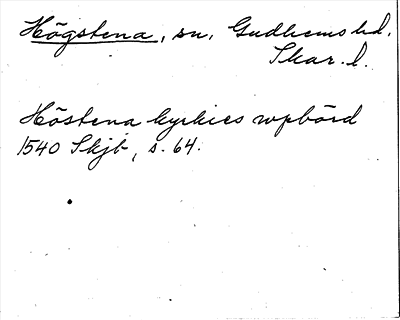 Högstena, sn, Gudhems hd.
Skar. l.
Höstena kyrkies wpbörd
1540 Skjb, s. 64.